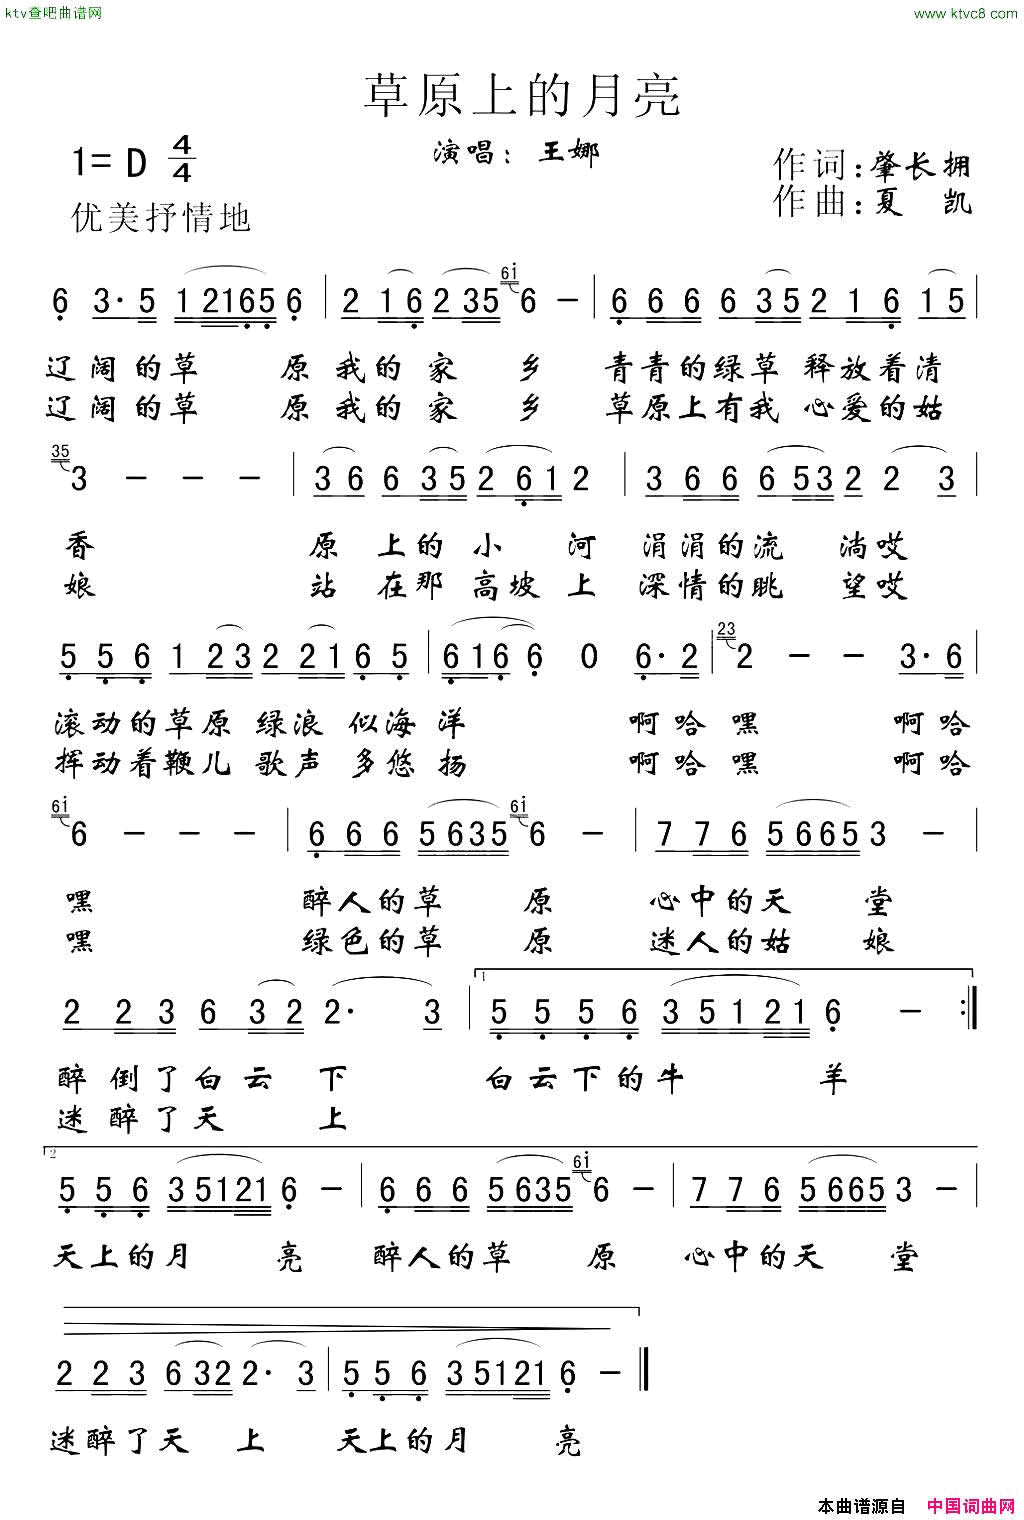 ktv查吧曲谱网
www.ktvc8.com
草原上的月亮
1=D 4/4
演唱：王娜
作词：肇长拥
作曲：夏 凯
优美抒情地
6 3· 5 1 2 1 6 5 6 | 2 1 6 2 3 5 6i 6 - | 6 6 6 6 3 5 2 1 6 1 5 |
辽阔的草 原我的家 乡 青青的绿草 释放着清
辽阔的草 原我的家 乡 草原上有我 心爱的姑
35 3 - - - | 3 6 6 3 5 2 6 1 2 | 3 6 6 6 5 3 2 2 3 |
香 原 上的小 河 涓涓的流 淌哎
娘 站 在那高坡上 深情的眺 望哎
5 5 6 1 2 3 2 2 1 6 5 | 6 1 6 6 0 6· 2 | 23 2 - - 3· 6 |
滚动的草原 绿浪 似海洋 啊哈嘿 啊哈
挥动着鞭儿 歌声 多悠扬 啊哈嘿 啊哈
6i 6 - - - | 6 6 6 5 6 3 5 6i 6 - | 7 7 6 5 6 6 5 3 - |
嘿 醉人的草 原 心中的天 堂
嘿 绿色的草 原 迷人的姑 娘
2 2 3 6 3 2 2· 3 | 1 5 5 5 6 3 5 1 2 1 6 - :‖
醉 倒了白云 下 白云下的牛 羊
迷 醉了天 上
2 5 5 6 3 5 1 2 1 6 - | 6 6 6 5 6 3 5 6i 6 - | 7 7 6 5 6 6 5 3 - |
天上的月 亮 醉人的草 原 心中的天 堂
2 2 3 6 3 2 2· 3 | 5 5 6 3 5 1 2 1 6 - ‖
迷醉了天 上 天上的月 亮
本曲谱源自 中国词曲网